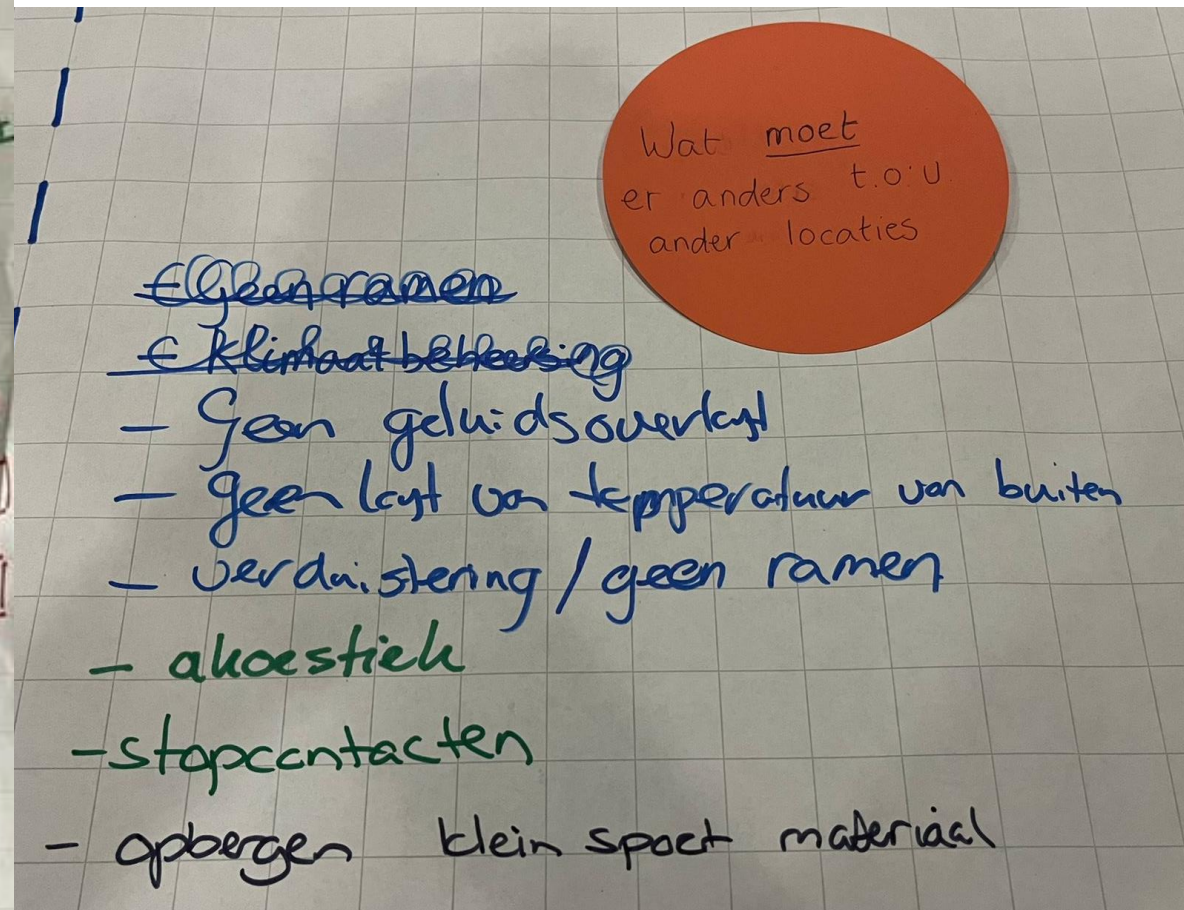 Wat moet
er anders t.o.v.
ander locaties
- Geen ramen
- klimaatbeheersing
- Geen geluidsoverlast
- geen last van temperatuur van buiten
- verduistering / geen ramen
- akoestiek
- stopcontacten
- opbergen klein sport materiaal